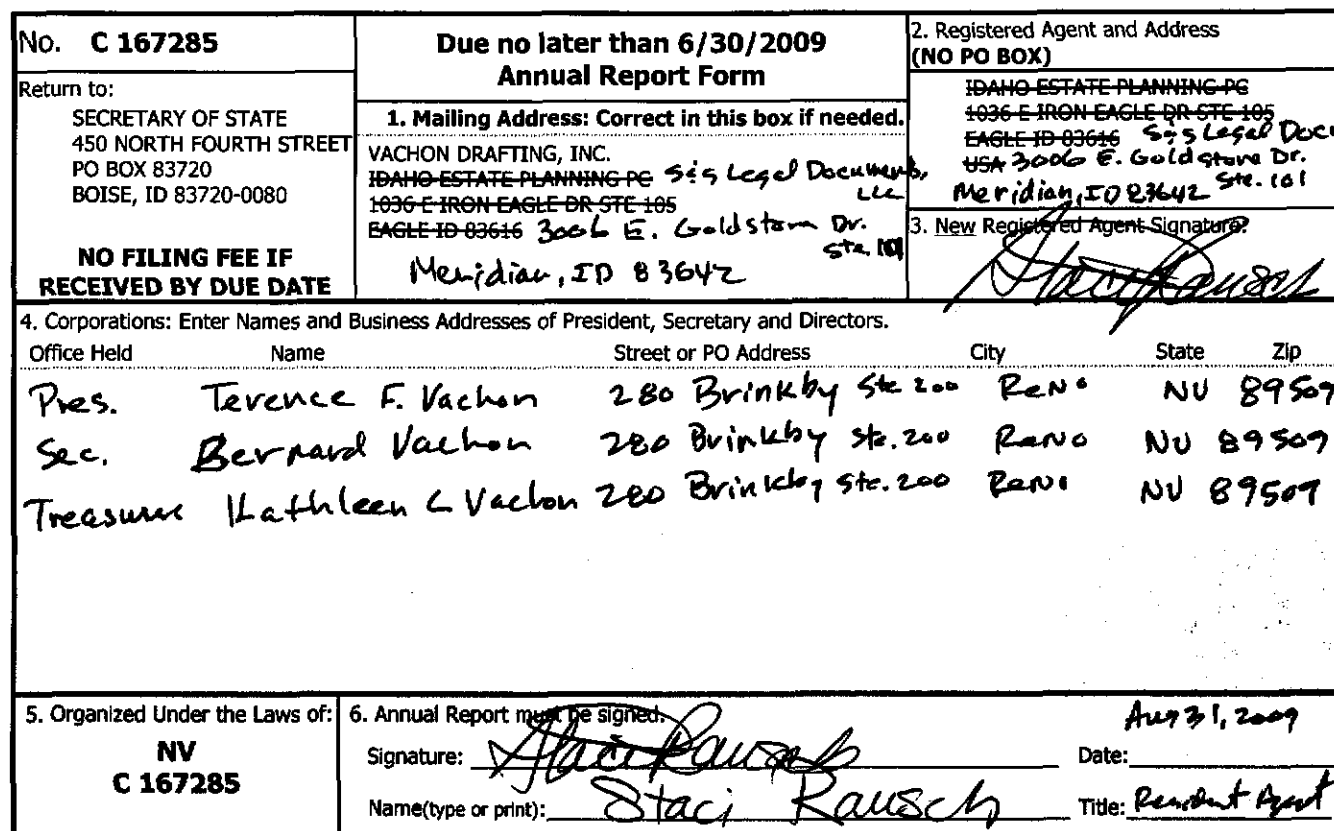 No. C 167285
Return to:
SECRETARY OF STATE
450 NORTH FOURTH STREET
PO BOX 83720
BOISE, ID 83720-0080
NO FILING FEE IF
RECEIVED BY DUE DATE
Due no later than 6/30/2009
Annual Report Form
1. Mailing Address: Correct in this box if needed.
VACHON DRAFTING, INC.
IDAHO ESTATE PLANNING PC S&S Legal Documents, LLC
1036 E IRON EAGLE DR STE 105
EAGLE ID 83616 3006 E. Goldstone Dr. Ste. 101
Meridian, ID 83642
2. Registered Agent and Address
(NO PO BOX)
IDAHO ESTATE PLANNING PC
1036 E IRON EAGLE DR STE 105
EAGLE ID 83616 S&S Legal Docu
USA 3006 E. Goldstone Dr.
Meridian, ID 83642 Ste. 101
3. New Registered Agent Signature:
Staci Rausch
4. Corporations: Enter Names and Business Addresses of President, Secretary and Directors.
Office Held Name Street or PO Address City State Zip
Pres. Terence F. Vachon 280 Brinkby Ste 200 Reno NV 89509
Sec. Bernard Vachon 280 Brinkby Ste. 200 Reno NV 89509
Treasurer Kathleen L Vachon 280 Brinkby Ste. 200 Reno NV 89509
5. Organized Under the Laws of:
NV
C 167285
6. Annual Report must be signed.
Signature: Staci Rausch
Name(type or print): Staci Rausch
Aug 31, 2009
Date:
Title: Resident Agent